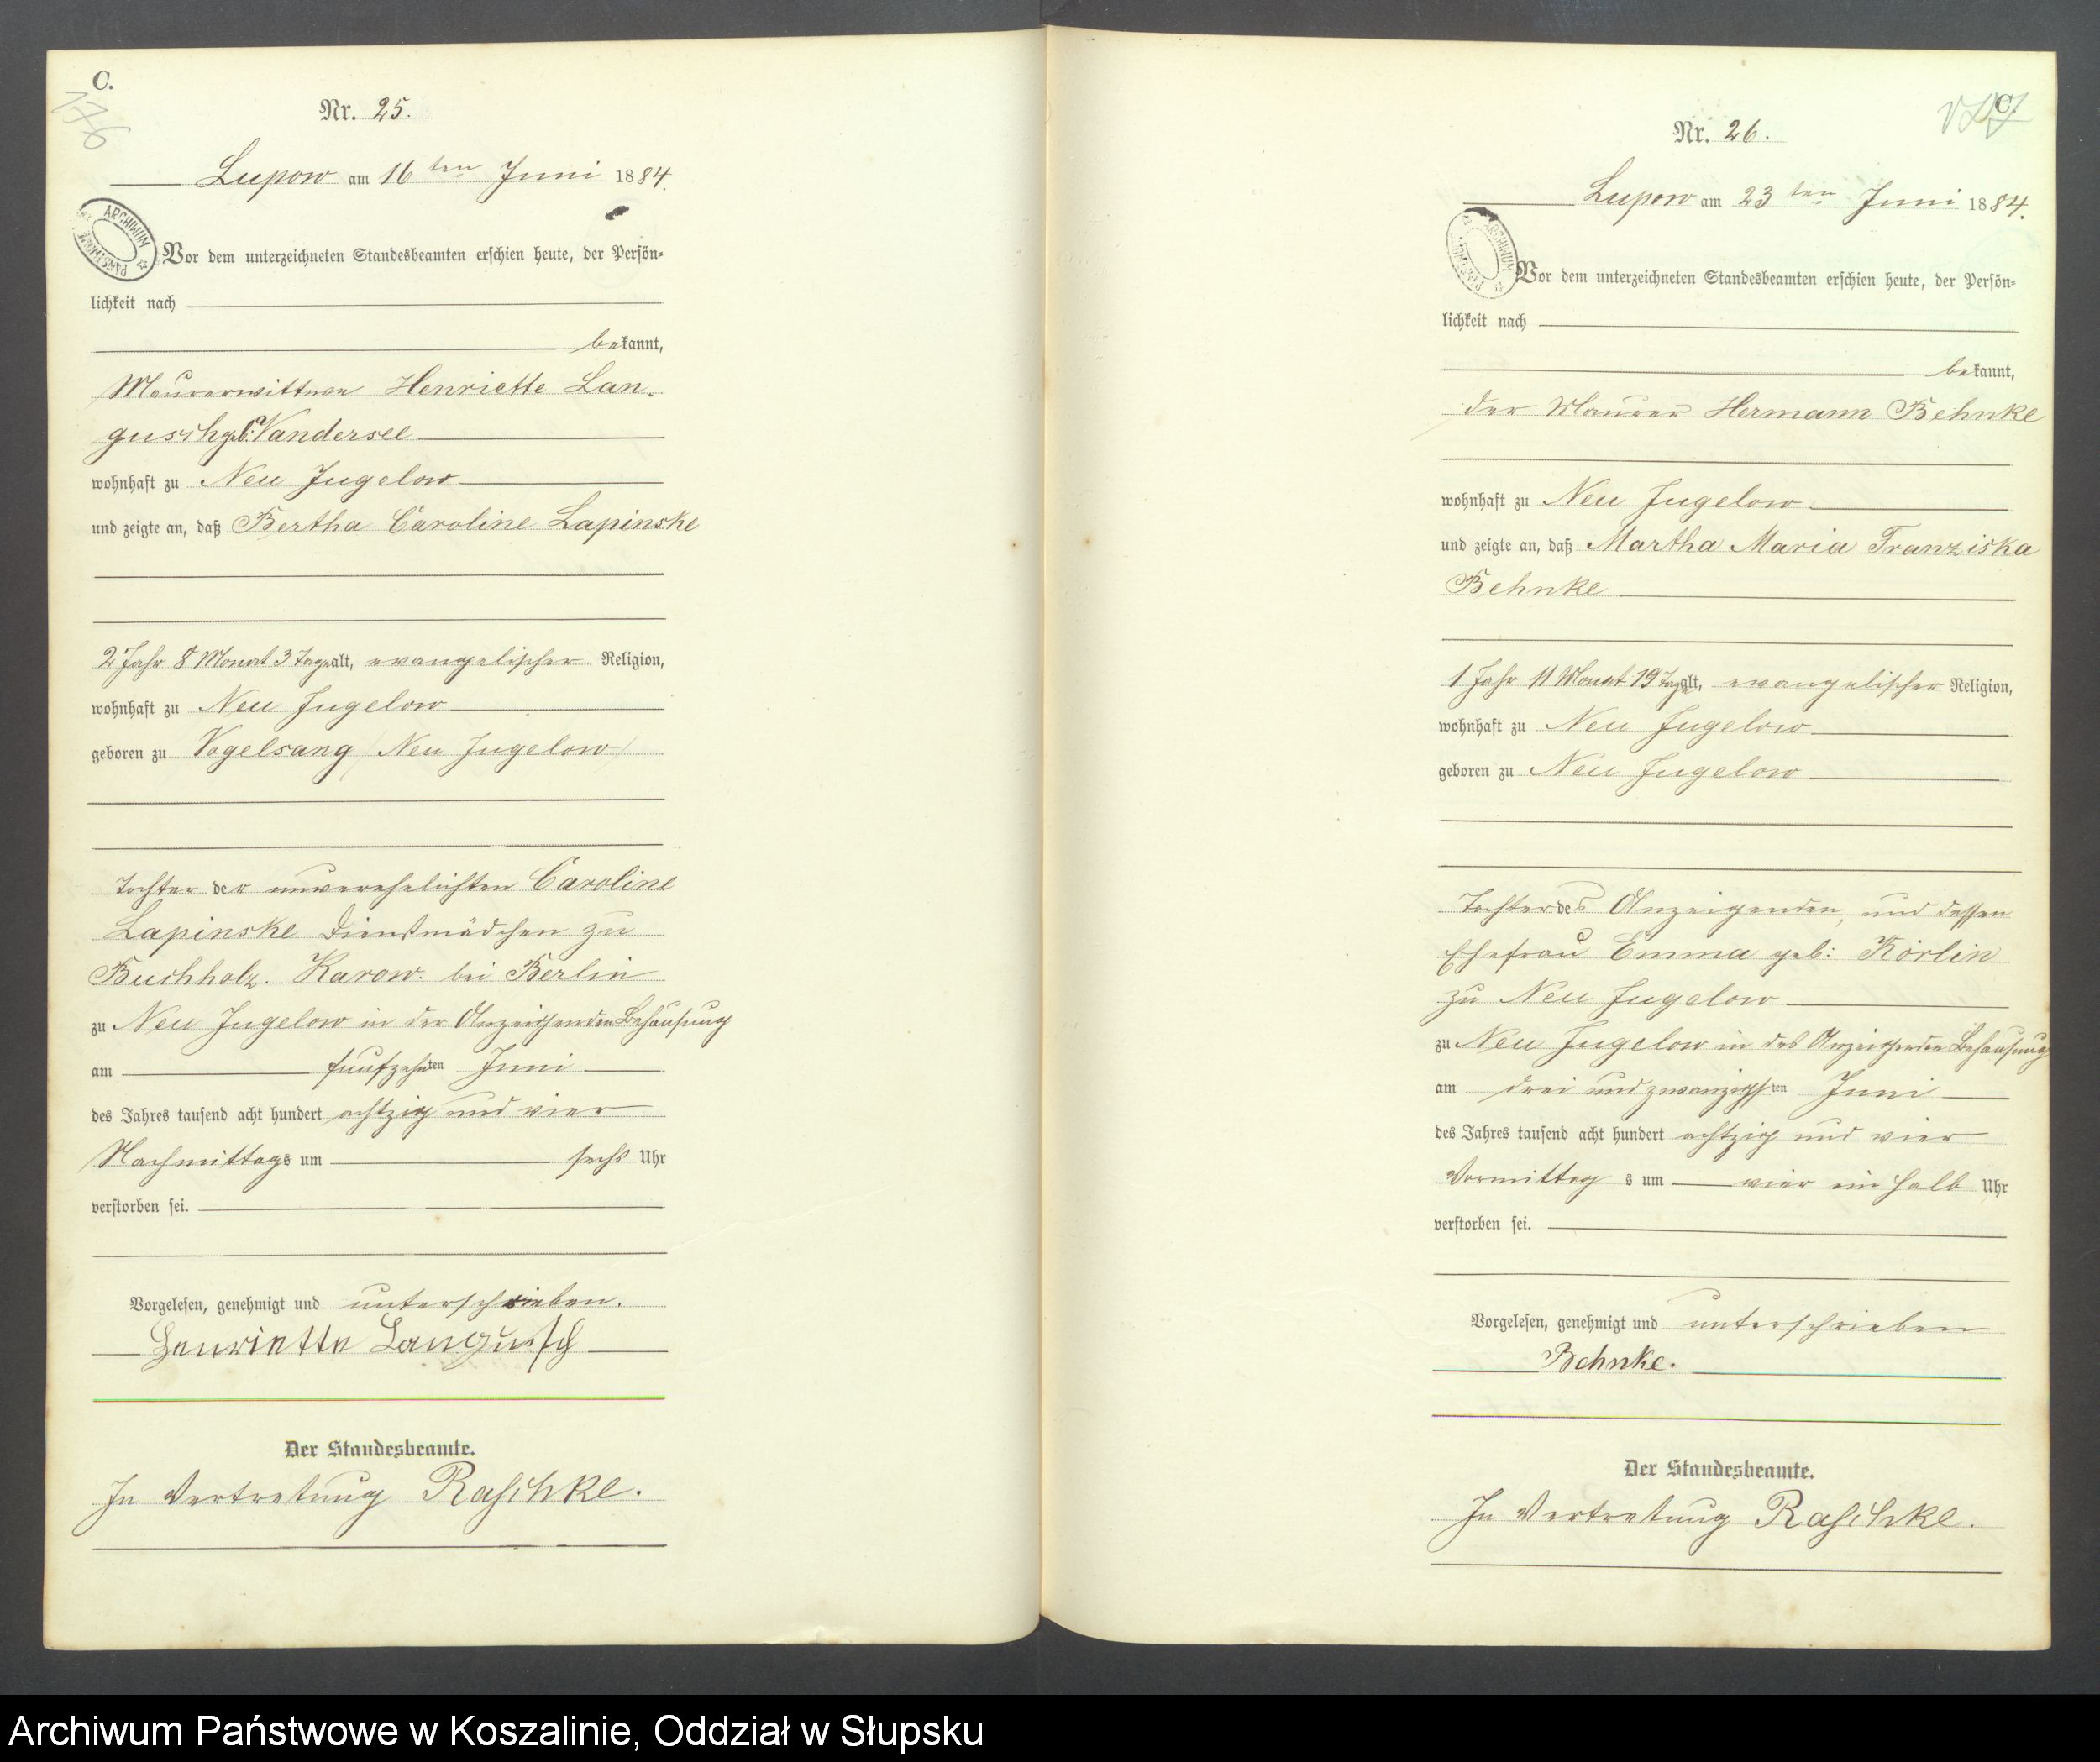 C.
176
Nr. 25.
Lupow am 16ten Juni 1884.
ARCHIWUM
Vor dem unterzeichneten Standesbeamten erschien heute, der Persön-
lichkeit nach
bekannt,
Maurerwittwe Henriette Lan-
gusch geb: Vandersee
wohnhaft zu Neu Jugelow
und zeigte an, daß Bertha Caroline Lapinske
2 Jahr 8 Monat 3 Tage alt, evangelischer Religion,
wohnhaft zu Neu Jugelow
geboren zu Vogelsang / Neu Jugelow /
Tochter der unverehelichten Caroline
Lapinske Dienstmädchen zu
Buchholz. Karow. bei Berlin
zu Neu Jugelow in der Anzeigenden Behausung
am funfzehnten Juni
des Jahres tausend acht hundert achtzig und vier
Nachmittags um sechs Uhr
verstorben sei.
Vorgelesen, genehmigt und unterschrieben.
Henriette Langusch
Der Standesbeamte.
In Vertretung Raschke.
C.
Nr. 26.
Lupow am 23ten Juni 1884.
ARCHIWUM
Vor dem unterzeichneten Standesbeamten erschien heute, der Persön-
lichkeit nach
bekannt,
der Maurer Hermann Behnke
wohnhaft zu Neu Jugelow
und zeigte an, daß Martha Maria Franziska
Behnke
1 Jahr 11 Monat 19 Tage alt, evangelischer Religion,
wohnhaft zu Neu Jugelow
geboren zu Neu Jugelow
Tochter des Anzeigenden, und dessen
Ehefrau Emma geb: Körlin
zu Neu Jugelow
zu Neu Jugelow in des Anzeigenden Behausung
am drei und zwanzigsten Juni
des Jahres tausend acht hundert achtzig und vier
Vormittags um vier ein halb Uhr
verstorben sei.
Vorgelesen, genehmigt und unterschrieben
Behnke.
Der Standesbeamte.
In Vertretung Raschke.
Archiwum Państwowe w Koszalinie, Oddział w Słupsku